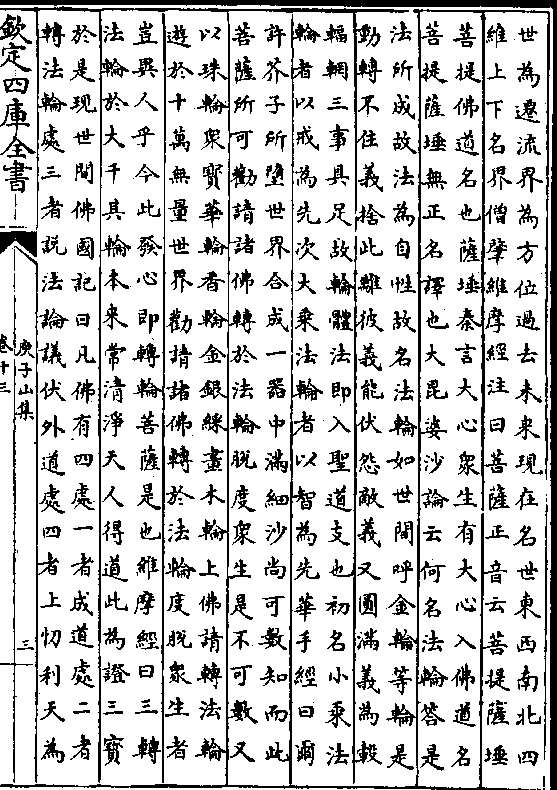 世為遷流界為方位過去未来現在名世東西南北四
維上下名界僧肇維摩經注曰菩薩正音云菩提薩埵
菩提佛道名也薩埵秦言大心衆生有大心入佛道名
菩提薩埵無正名譯也大毘婆沙論云何名法輪答是
法所成故法為自性故名法輪如世間呼金輪等輪是
動轉不住義捨此離彼義能伏怨敵義又圓滿義為轂
輻輞三事具足故輪體法即入聖道支也初名小乘法
輪者以戒為先次大乘法輪者以智為先華手經曰爾
許芥子所墮世界合成一器中滿細沙尚可數知而此
菩薩所可勸請諸佛轉於法輪脫度衆生是不可數又
以珠輪衆寳華輪香輪金銀綵畫木輪上佛請轉法輪
遊於十萬無量世界勸請諸佛轉於法輪度脫衆生者
豈異人乎今此發心即轉輪菩薩是也維摩經曰三轉
法輪於大千其輪本来常清淨天人得道此為證三寳
於是現世間佛國記曰凡佛有四處一者成道處二者
轉法輪處三者説法論議伏外道處四者上忉利天為
欽定四庫全書
庾子山集
卷十三
三